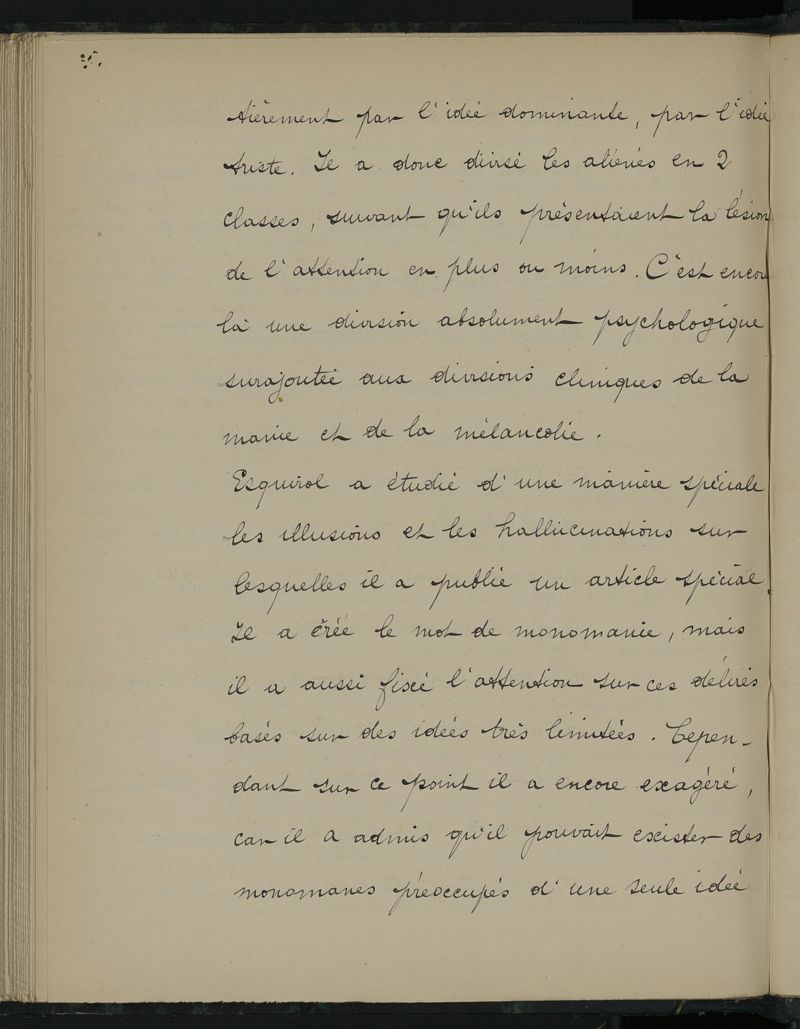 tièrement par l'idée dominante, par l'idée
triste. Il a donc divisé les aliénés en 2
classes, suivant qu'ils présentaient la lésion
de l'attention en plus ou moins. C'est encore
là une division absolument psychologique
surajoutée aux divisions cliniques de la
manie et de la mélancolie.
Esquirol a étudié d'une manière spéciale
les illusions et les hallucinations sur
lesquelles il a publié un article spécial.
Il a créé le mot de monomanie, mais
il a aussi fixé l'attention sur ces délires
basés sur des idées très limitées. Cepen-
dant sur ce point il a encore exagéré,
car il a admis qu'il pouvait exister des
monomanes préoccupés d'une seule idée